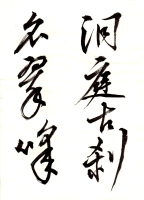 洞庭古刹
名翠峰